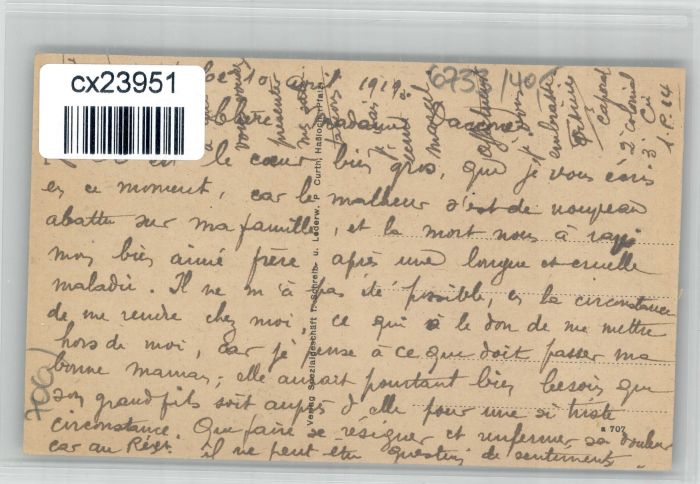 cx23951
10 avril 1919
673 /400
Chère Madame
le cœur bien gros, que je vous écris
en ce moment, car le malheur s'est de nouveau
abattu sur ma famille, et la mort nous à ravi
mon bien aimé frère après une longue et cruelle
maladie. Il ne m'à pas été possible, en la circonstance
de me rendre chez moi, ce qui à le don de me mettre
hors de moi, car je pense à ce que doit passer ma
bonne maman; elle aurait pourtant bien besoin que
son grand fils soit auprès d'elle pour une si triste
circonstance. Que faire se résigner et renfermer sa douleur
car au Régt. il ne peut être question de sentiments
vous
présenter
embrasse
caporal
2e Colonial
3e Cie
S.P. 24
700
Verlag Spezialgeschäft f. Schreib- u. Lederw. P. Curth, Hasloch (Pfalz)
a 707